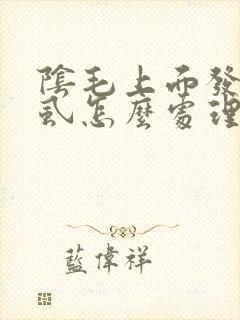 陰毛上面發
虱怎麼處理
藍偉祥